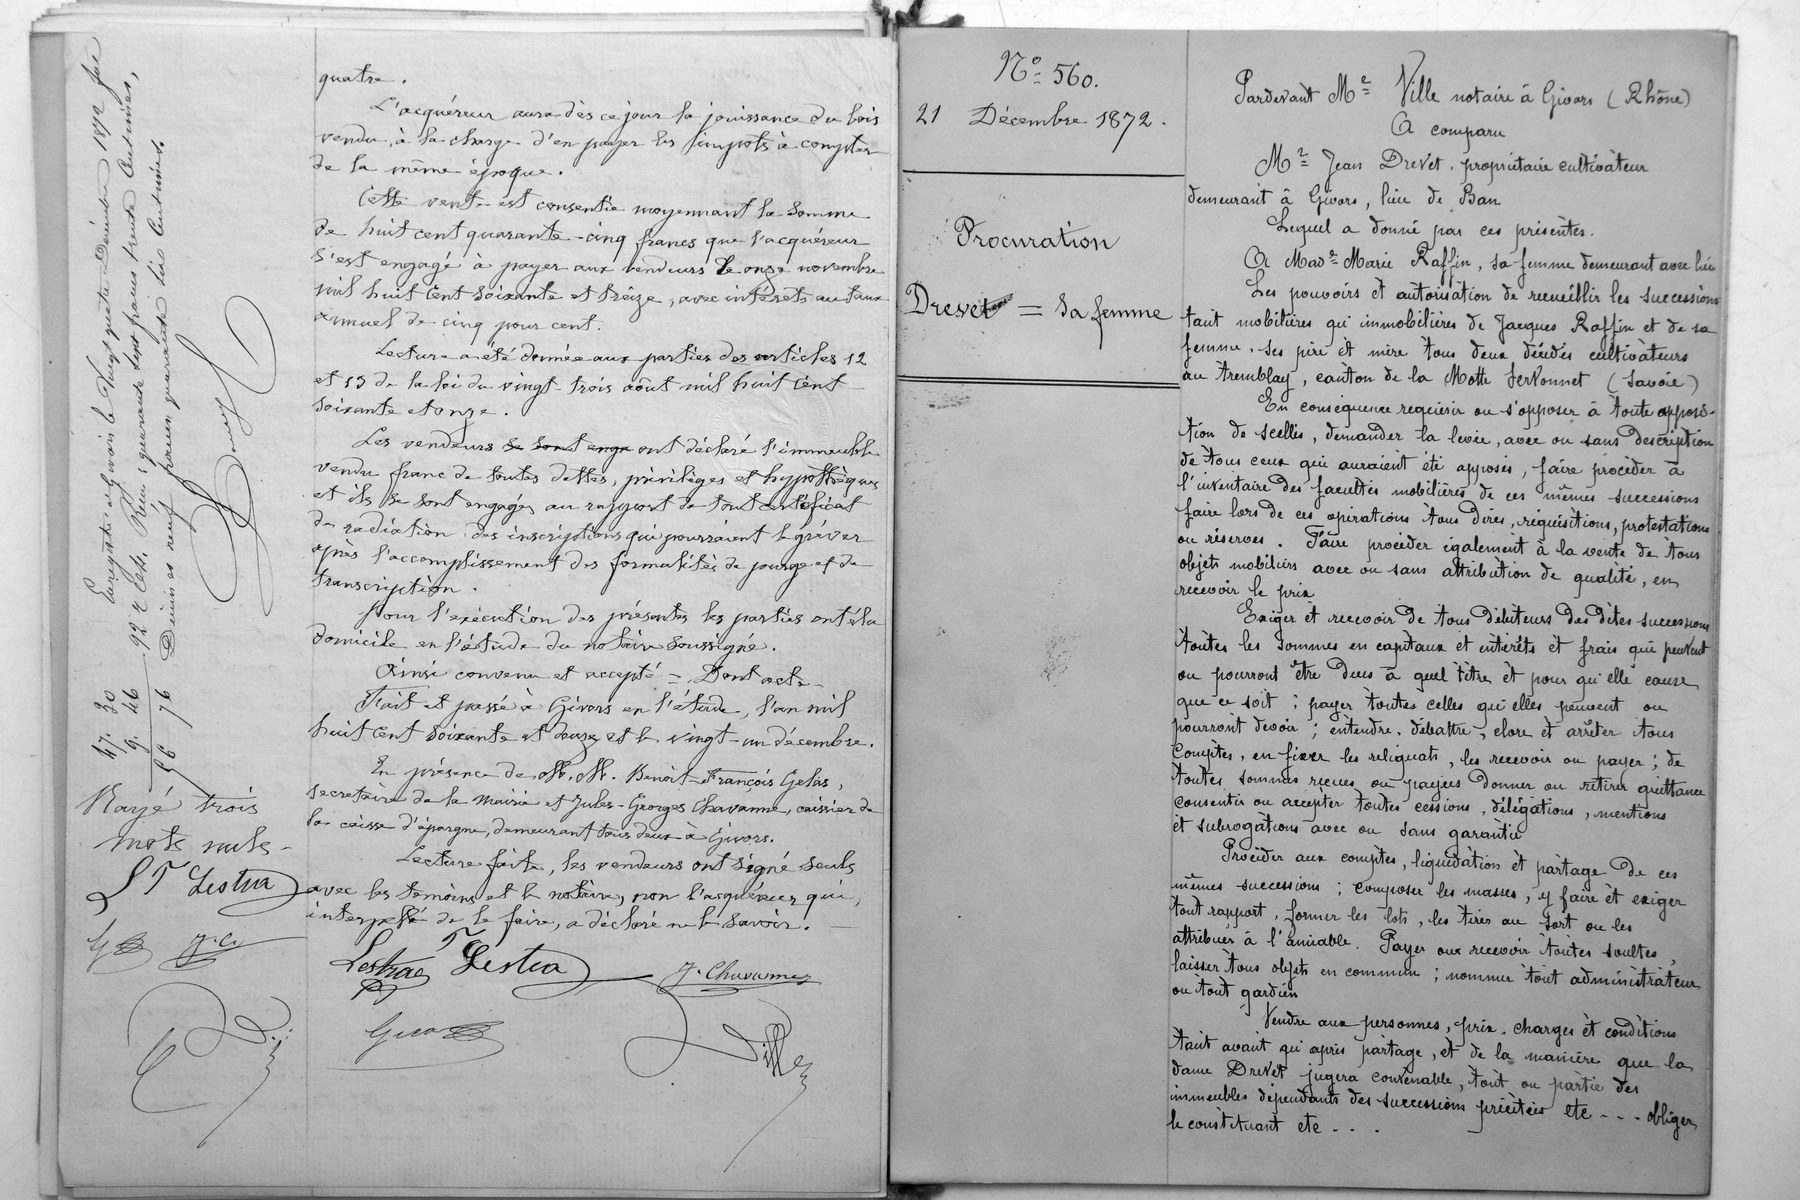 quatre.
L'acquéreur aura dès ce jour la jouissance du bois
vendu, à la charge d'en payer les impots à compter
de la même époque.
Cette vente est consentie moyennant la somme
de huit cent quarante-cinq francs que l'acquéreur
s'est engagé à payer aux vendeurs le onze novembre
mil huit cent soixante et treize, avec intérêts au taux
annuel de cinq pour cent.
Lecture a été donnée aux parties des articles 12
et 13 de la loi du vingt trois août mil huit cent
soixante et onze.
Les vendeurs se sont enga ont déclaré l'immeuble
vendu franc de toutes dettes, privilèges et hypothèques
et ils se sont engagés au rapport de tout certificat
de radiation des inscriptions qui pourraient le gréver
après l'accomplissement des formalités de purge et de
transcription.
Pour l'exécution des présentes les parties ont élu
domicile en l'étude du notaire soussigné.
Ainsi convenu et accepté = Dont acte -
Fait et passé à Givors en l'étude, l'an mil
huit cent soixante et douze et le vingt-un décembre.
En présence de M. M. Benoit-François Gelas,
secrétaire de la Mairie et Jules-Georges Chavanne, caissier de
la caisse d'épargne, demeurant tous deux à Givors.
Lecture faite, les vendeurs ont signé seuls
avec les témoins et le notaire, non l'acquéreur qui,
interpellé de le faire, a déclaré ne le savoir. -
Lestra T Lestra J. Chavanne
Ville
Enregistré à Givors le Vingt quatre Décembre 1872 fol
92 V. C. Reçu: quarante sept francs trente Centimes,
Décimes neuf francs quarante six Centimes.
47. 30
9. 46
56 76
Rayé trois
mots nuls -
T Lestra
J. C.
Nº 560.
21 Décembre 1872.
Procuration
Drevet = Sa femme
Pardevant Me Ville notaire à Givors (Rhône)
A comparu
Mr Jean Drevet, propriétaire cultivateur
demeurant à Givors, lieu de Ban
Lequel a donné par ces présentes.
A Made Marie Raffin, sa femme demeurant avec lui
Les pouvoirs et autorisation de recueillir les successions
tant mobilières qu'immobilières de Jacques Raffin et de sa
femme, ses père et mère tous deux décédés cultivateurs
au Tremblay, canton de la Motte Servonnet (Savoie)
En conséquence requérir ou s'opposer à toute apposi-
tion de scellés, demander la levée, avec ou sans description
de tous ceux qui auraient été apposés, faire procéder à
l'inventaire des facultés mobilières de ces mêmes successions
faire lors de ces opérations tous dires, réquisitions, protestations
ou réserves. Faire procéder également à la vente de tous
objets mobiliers avec ou sans attribution de qualité, en
recevoir le prix
Exiger et recevoir de tous débiteurs des dites successions
toutes les sommes en capitaux et intérêts et frais qui peuvent
ou pourront être dues à quel titre et pour qu'elle cause
que ce soit; payer toutes celles qu'elles peuvent ou
pourront devoir; entendre, débattre, clore et arrêter tous
Comptes, en fixer les reliquats, les recevoir ou payer; de
toutes sommes reçues ou payées donner ou retirer quittance
consentir ou accepter toutes cessions, délégations, mentions
et subrogations avec ou sans garantie
Procéder aux comptes, liquidation et partage de ces
mêmes successions; composer les masses, y faire et exiger
tout rapport, former les lots, les tirer au sort ou les
attribuer à l'amiable. Payer ou recevoir toutes soultes,
laisser tous objets en commun; nommer tout administrateur
ou tout gardien
Vendre aux personnes, prix, charges et conditions
tant avant qu'après partage, et de la manière que la
dame Drevet jugera convenable, tout ou partie des
immeubles dépendants des successions précitées etc - - - obliger
le constituant etc - - .